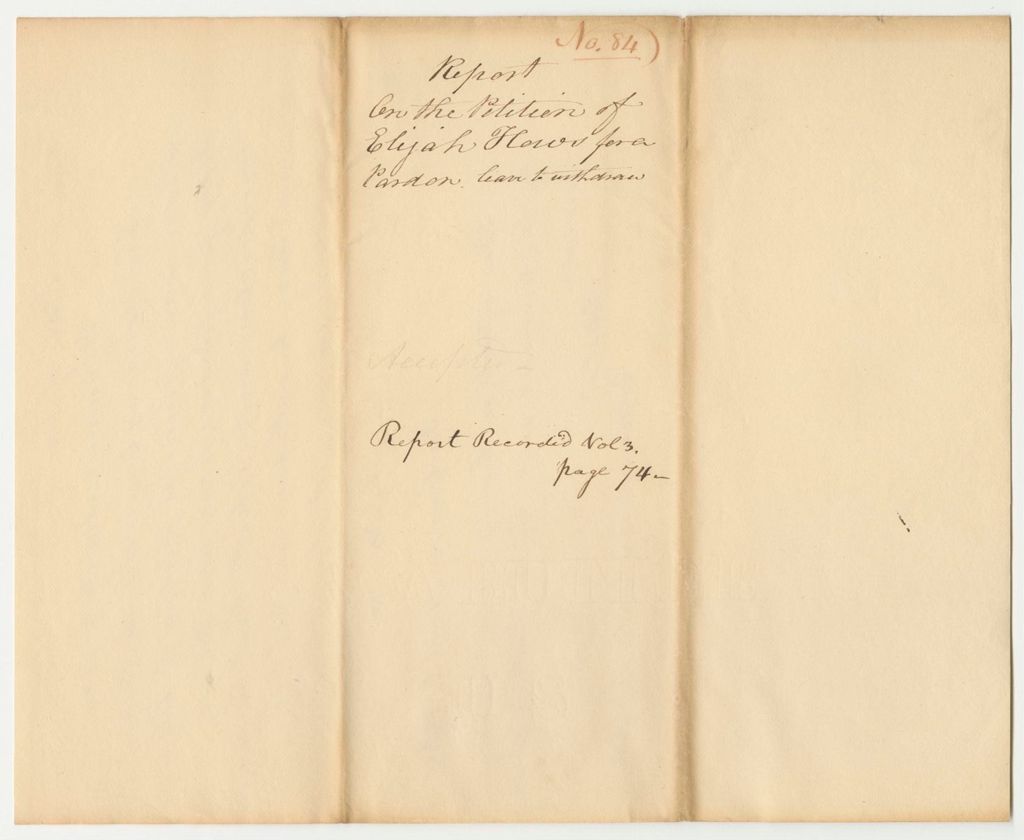 No. 84)
Report
On the Petition of
Elijah Hows for a
Pardon. leave to withdraw
Report Recorded Vol 3.
page 74-